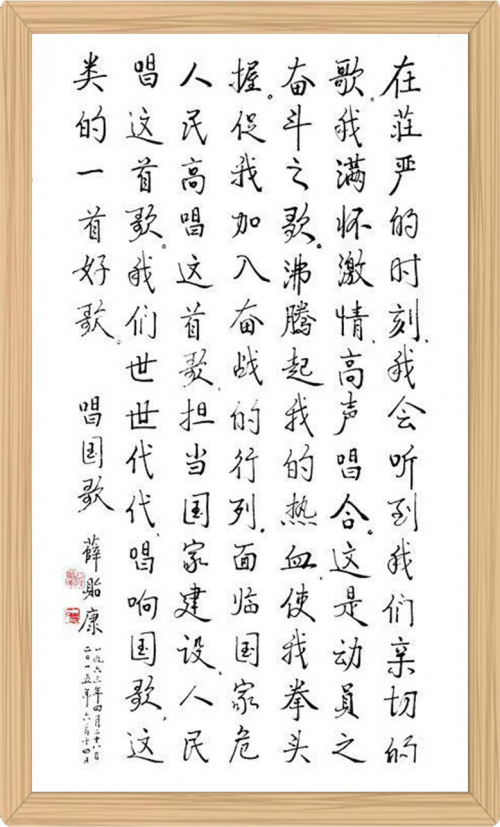 在莊严的时刻,我会听到我们亲切的
歌。我满怀激情,高声唱合。这是动员之
奋斗之歌。沸腾起我的热血,使我拳头
握。促我加入奋战的行列。面临国家危
人民高唱这首歌,担当国家建设,人民
唱这首歌。我们世世代代,唱响国歌,这
类的一首好歌。 唱国歌 薛贻康
一九六三年四月二十八日
二〇一五年六月十四日